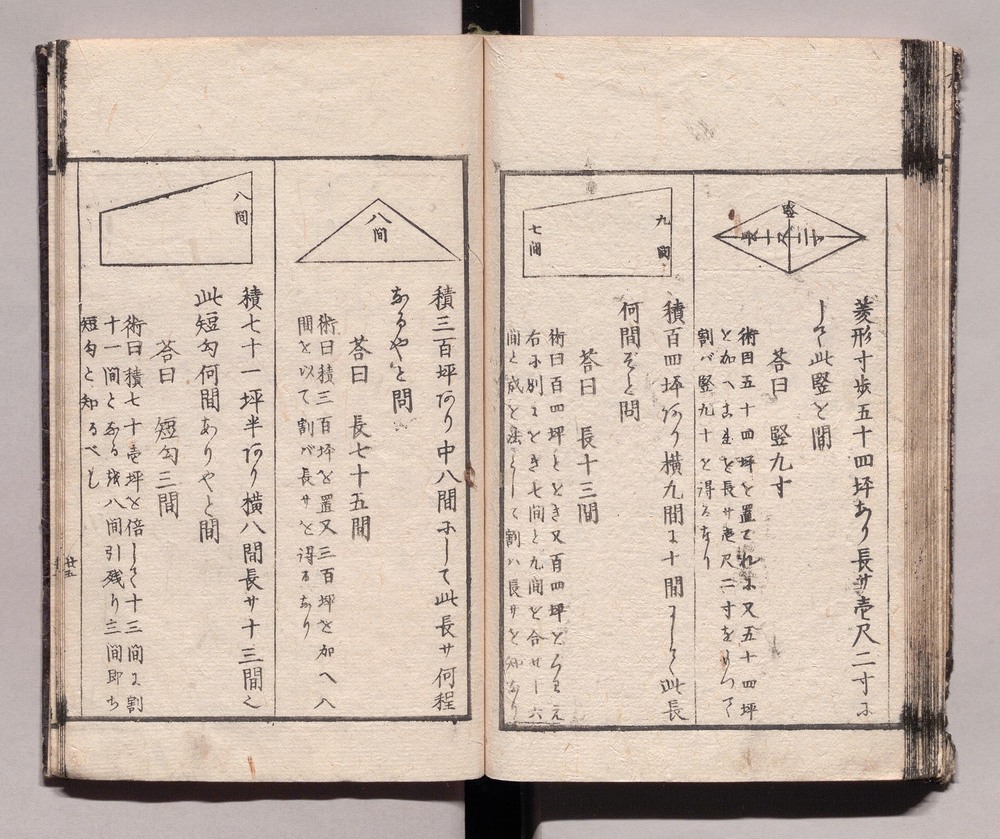 竪
長壱尺二寸
菱形寸歩五十四坪あり長サ壱尺二寸に
して此竪を問
答曰　竪九寸
術曰五十四坪を置てれに又五十四坪
を加へ
割バ竪九十と得るなり
九間
七間
積百四坪あり横九間に十間にして此長
何間ぞと問
答曰　長十三間
術曰百四坪ととき又百四坪と
右に別にとき七間と九間を合せ一六
間と成を法として割ハ長サと知なり
八間
積三百坪あり中八間にして此長サ何程
なるやと問
答曰　長七十五間
術曰積三百坪を置又三百坪を加へ八
間を以て割バ長サを得るなり
八間
積七十一坪半あり横八間長サ十三間く
此短勾何間ありやと問
答曰　短勾三間
術曰積七十壱坪を倍して十三間に割
十一間となる残八間引残り三間即ち
短勾と知るべし
廿五